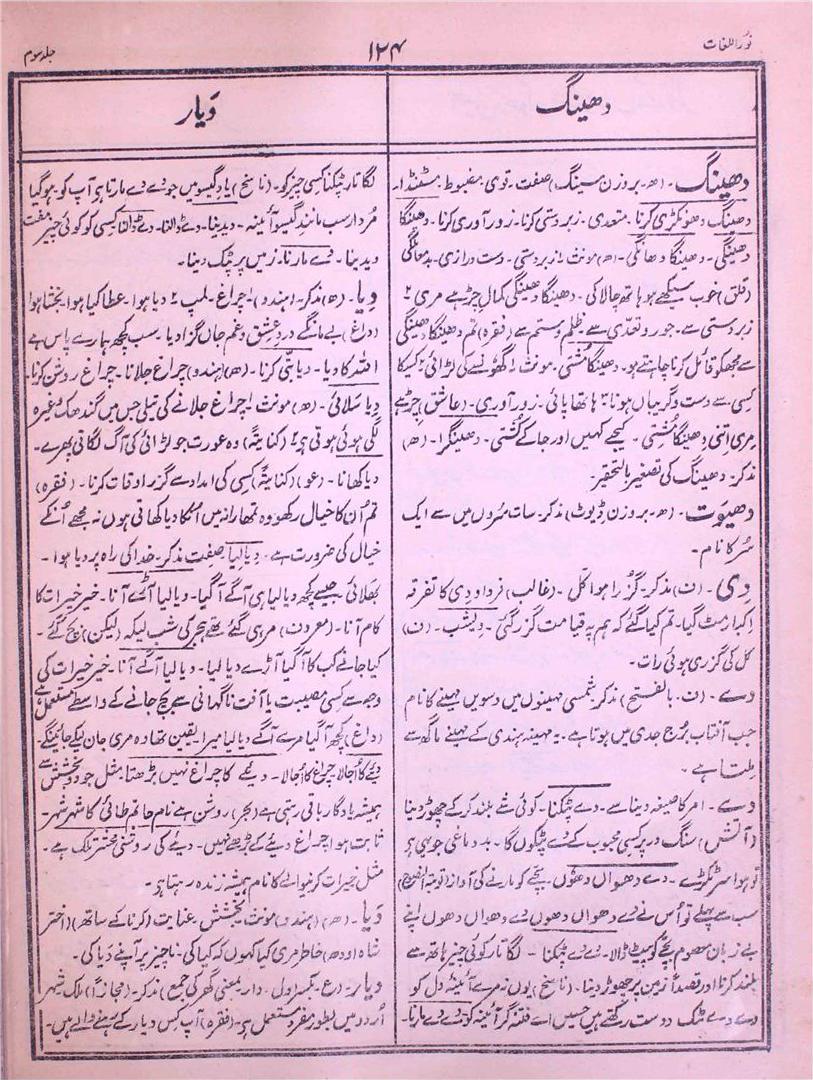 نور اللغات
۱۲۴
جلد سوم
دھینگ
دَیار
دھینگ۔ (ھ۔ بروزن سینگ) صفت۔ قوی۔ مضبوط۔ مسٹنڈا۔
دھینگ دھونکڑی کرنا۔ متعدی۔ زبردستی کرنا۔ زور آوری کرنا۔ دھینگا
دھینگی۔ دھینگا دھانگی۔ (ھ) مونث۔ زبردستی۔ دست درازی۔ بدمعاشگی
(قلق) خوب سیکھے ہو ہاتھ چالاکی۔ دھینگا دھینگی کمال چڑ ہے مری ۲
زبردستی سے۔ جور و تعدّی سے۔ ظلم و ستم سے (فقرہ) تم دھینگا دھینگی
سے مجھکو قائل کرنا چاہتے ہو۔ دھینگا مُشتی۔ مونث ۱ گھونسے کی لڑائی ۲ کیسکا
کسی سے دست و گریباں ہونا ۳ ہاتھا پائی۔ زور آوری۔ (عاشق) چڑ ہے
مری اتنی دھینگا مُشتی۔ کیجے کہیں اور جا کے کُشتی۔ دھینگرا۔ (ھ)
مذکر۔ دھینگ کی تصغیر بالتحقیر۔
دھیوَت۔ (ھ۔ بروزن ڈیوٹ) مذکر۔ سات سُروں میں سے ایک
سُر کا نام۔
دی۔ (ف) مذکر۔ گزرا ہوا کل۔ (غالب) فردا و دی کا تفرقہ
اکبار مٹ گیا۔ تم کیا گئے کہ ہم پہ قیامت گزر گئی۔ دیشب۔ (ف)
کل کی گزری ہوئی رات۔
دے۔ (ف۔ بالفتح) مذکر شمسی مہینوں میں دسویں مہینے کا نام
جب آفتاب بُرج جدی میں ہوتا ہے۔ یہ مہینہ ہندی کے مہینے ماگھ سے
ملتا ہے۔
دے۔ امر کا صیغہ دینا سے۔ دے پٹکنا۔ کوئی شے بلند کرکے چھوڑ دینا
(آتش) سنگ در پر کسی محبوب کے دے پٹکوں گا۔ بد دماغی جو یہی ہی
تو ہوا سر ٹکڑے۔ دے دھواں دھوں۔ بچے کو مارنے کی آواز (توبۃ النصوح)
سب سے پہلے تو اُس نے دے دھواں دھوں دے دھواں دھوں اپنے
بے زبان معصوم بچے کو پیٹ ڈالا۔ دے دے پٹکنا۔ لگاتار کوئی چیز ہاتھ سے
بلند کرنا اور قصداً زمین پر چھوڑ دینا۔ (ناسخ) یوں نہ مرے آئینۂ دل کو
دے دے پٹک دوست رکھتے ہیں حسیں اے فتنہ گر آئینہ کو دے دے مارنا۔
لگاتار پٹکنا کسی چیز کو۔ (ناسخ) یادِ گیسو میں جو دے دے مارتا ہی آپ کو ہو گیا
مُردار سب مانند گیسو آئینہ۔ دیدینا۔ دے ڈالنا۔ دے ڈالنا کسی کو کوئی چیز مفت
دیدینا۔ دے مارنا۔ زمین پر پٹک دینا۔
دِیا۔ (ھ) مذکر۔ (ہندو) ۱ چراغ۔ لمپ ۲ دیا ہوا۔ عطا کیا ہوا۔ بخشا ہوا
(داغ) بے مانگے دردِ عشق و غم جاں گزا دیا۔ سب کچھ ہمارے پاس ہے
اللہ کا دیا۔ دیا بتّی کرنا۔ (ھ) (ہندو) چراغ جلانا۔ چراغ روشن کرنا۔
دِیا سلائی۔ (ھ) مونث ۱ چراغ جلانے کی تیلی جس میں گندھک وغیرہ
لگی ہوئی ہوتی ہی ۲ (کنایتہً) وہ عورت جو لڑائی کی آگ لگاتی پھرے۔
دیا کھانا۔ (عو) (کنایتہً) کسی کی امداد سے گزر اوقات کرنا۔ (فقرہ)
تم اُن کا خیال رکھو وہ تمھارا نہ میں انکا دیا کھاتی ہوں نہ مجھے اُنکے
خیال کی ضرورت ہے۔ دیا لیا صفت مذکر۔ خدا کی راہ پر دیا ہوا۔
بھلائی جیسے کچھ دیا لیا ہی آگے آگیا۔ دیا لیا آڑے آنا۔ خیر خیرات کا
کام آنا۔ (معروف) مر ہی گئے تھے ہجر کی شب لیکہ (لیکن) بچ گئے۔
کیا جانے کب کا آگیا آڑے دیا لیا۔ دیا لیا آگے آنا۔ خیر خیرات کی
وجہ سے کسی مصیبت یا آفت ناگہانی سے بچ جانے کے واسطے مستعمل ہے
(داغ) کچھ آ گیا مرے آگے دیا لیا میرا یقین تھا وہ مری جان لیکے جائینگے
دیئے کا اُجالا چراغ کا اُجالا۔ دیئے کا چراغ نہیں بڑھتا مثل جود و بخشش سے
ہمیشہ یادگار باقی رہتی ہے (بحر) روشن ہے نام حاتم طائی کا شہر شہر۔
ثابت ہوا چراغ دیئے کے بڑھے نہیں۔ دیئے کی روشنی محشر تلک ہے۔
مثل خیرات کرنیوالے کا نام ہمیشہ زندہ رہتا ہی۔
دَیا۔ (ھ) (ہندو) مونث بخشش۔ عنایت (کرنا کے ساتھ) (اختر
شاہ اودھ) خاطر مری کیا کہوں کہ کیا کی۔ ناچیز پر آپنے دَیا کی۔
دیار۔ (ع۔ بکسر اول۔ دار بمعنی گھر کی جمع) مذکر۔ (مجازاً) ملک شہر
اُردو میں بطور مفرد مستعمل ہی (فقرہ) آپ کس دیار کے رہنے والے ہیں۔